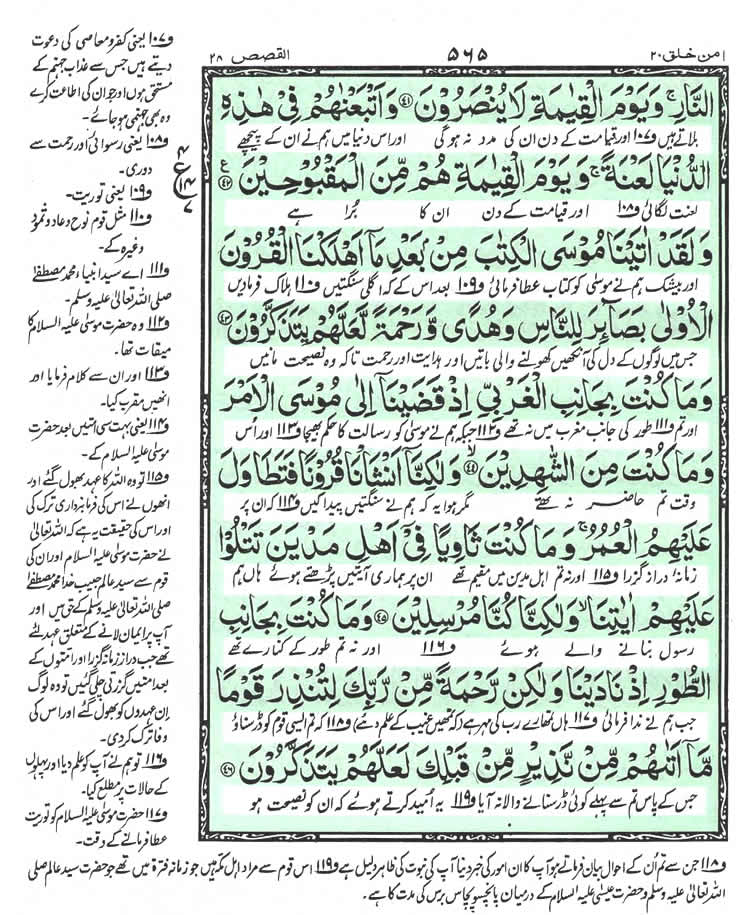 امن خلق ٢٠
٥٦٥
القصص ٢٨
النَّارِ ۚ وَيَوْمَ الْقِيٰمَةِ لَا يُنْصَرُوْنَ ﴿٤١﴾ وَاَتْبَعْنٰهُمْ فِيْ هٰذِهِ
بلاتے ہیں ف۱۰۷ اور قیامت کے دن ان کی مدد نہ ہوگی اور اس دنیا میں ہم نے ان کے پیچھے
الدُّنْيَا لَعْنَةً ۚ وَيَوْمَ الْقِيٰمَةِ هُمْ مِّنَ الْمَقْبُوْحِيْنَ ﴿٤٢﴾
لعنت لگائی ف۱۰۸ اور قیامت کے دن ان کا بُرا ہے
وَلَقَدْ اٰتَيْنَا مُوْسَى الْكِتٰبَ مِنْۢ بَعْدِ مَآ اَهْلَكْنَا الْقُرُوْنَ
اور بیشک ہم نے موسٰی کو کتاب عطا فرمائی ف۱۰۹ بعد اس کے کہ اگلی سنگتیں ف۱۱۰ ہلاک فرمادیں
الْاُوْلٰى بَصَآئِرَ لِلنَّاسِ وَهُدًى وَّرَحْمَةً لَّعَلَّهُمْ يَتَذَكَّرُوْنَ ﴿٤٣﴾
جس میں لوگوں کے دل کی آنکھیں کھولنے والی باتیں اور ہدایت اور رحمت تاکہ وہ نصیحت مانیں
وَمَا كُنْتَ بِجَانِبِ الْغَرْبِيِّ اِذْ قَضَيْنَآ اِلٰى مُوْسَى الْاَمْرَ
اور تم ف۱۱۱ طور کی جانب مغرب میں نہ تھے ف۱۱۲ جبکہ ہم نے موسٰی کو رسالت کا حکم بھیجا ف۱۱۳ اور اس
وَمَا كُنْتَ مِنَ الشّٰهِدِيْنَ ﴿٤٤﴾ وَلٰكِنَّآ اَنْشَاْنَا قُرُوْنًا فَتَطَاوَلَ
وقت تم حاضر نہ تھے مگر ہوا یہ کہ ہم نے سنگتیں پیدا کیں ف۱۱۴ کہ ان پر
عَلَيْهِمُ الْعُمُرُ ۚ وَمَا كُنْتَ ثَاوِيًا فِيْٓ اَهْلِ مَدْيَنَ تَتْلُوْا
زمانہ دراز گزرا ف۱۱۵ اور نہ تم اہل مدین میں مقیم تھے ان پر ہماری آیتیں پڑھتے ہوئے ہاں ہم
عَلَيْهِمْ اٰيٰتِنَا ۙ وَلٰكِنَّا كُنَّا مُرْسِلِيْنَ ﴿٤٥﴾ وَمَا كُنْتَ بِجَانِبِ
رسول بنانے والے ہوئے ف۱۱۶ اور نہ تم طور کے کنارے تھے
الطُّوْرِ اِذْ نَادَيْنَا وَلٰكِنْ رَّحْمَةً مِّنْ رَّبِّكَ لِتُنْذِرَ قَوْمًا
جب ہم نے ندا فرمائی ف۱۱۷ ہاں تمھارے رب کی مہر ہے (کہ تمھیں غیب کے علم دیئے) ف۱۱۸ کہ تم ایسی قوم کو ڈر سناؤ
مَّآ اَتٰىهُمْ مِّنْ نَّذِيْرٍ مِّنْ قَبْلِكَ لَعَلَّهُمْ يَتَذَكَّرُوْنَ ﴿٤٦﴾
جس کے پاس تم سے پہلے کوئی ڈر سنانے والا نہ آیا ف۱۱۹ یہ امید کرتے ہوئے کہ ان کو نصیحت ہو
ف۱۰۷ یعنی کفر و معاصی کی دعوت
دیتے ہیں جس سے عذاب جہنم کے
مستحق ہوں اور جو ان کی اطاعت کرے
وہ بھی جہنمی ہو جائے۔
ف۱۰۸ یعنی رسوائی اور رحمت سے
دوری۔
ف۱۰۹ یعنی توریت۔
ف۱۱۰ مثل قوم نوح و عاد و ثمود
وغیرہ کے۔
ف۱۱۱ اے سید انبیاء محمد مصطفٰے
صلی اللہ تعالیٰ علیہ وسلم۔
ف۱۱۲ وہ حضرت موسٰی علیہ السلام کا
میقات تھا۔
ف۱۱۳ اور ان سے کلام فرمایا اور
انھیں مقرب کیا۔
ف۱۱۴ یعنی بہت سی امتیں بعد حضرت
موسٰی علیہ السلام کے۔
ف۱۱۵ تو وہ اللہ کا عہد بھول گئے اور
انھوں نے اس کی فرمانبرداری ترک کی
اور اس کی حقیقت یہ ہے کہ اللہ تعالیٰ
نے حضرت موسٰی علیہ السلام اور ان کی
قوم سے سید عالم حبیب خدا محمد مصطفٰے
صلی اللہ تعالیٰ علیہ وسلم کے حق میں اور
آپ پر ایمان لانے کے متعلق عہد لئے
تھے جب دراز زمانہ گزرا اور امتوں کے
بعد امتیں گزرتی چلی گئیں تو وہ لوگ
ان عہدوں کو بھول گئے اور اس کی
وفا ترک کردی۔
ف۱۱۶ تو ہم نے آپ کو علم دیا اور پہلوں
کے حالات پر مطلع کیا۔
ف۱۱۷ حضرت موسٰی علیہ السلام کو توریت
عطا فرمانے کے وقت۔
ف۱۱۸ جن سے تم اُن کے احوال بیان فرماتے ہو آپ کا ان امور کی خبر دینا آپ کی نبوت کی ظاہر دلیل ہے ف۱۱۹ اس قوم سے مراد اہل مکہ ہیں جو زمانہ فترۃ میں تھے جو حضرت سید عالم صلی
اللہ تعالیٰ علیہ وسلم و حضرت عیسٰی علیہ السلام کے درمیان پانچسو پچاس برس کی مدت کا ہے۔